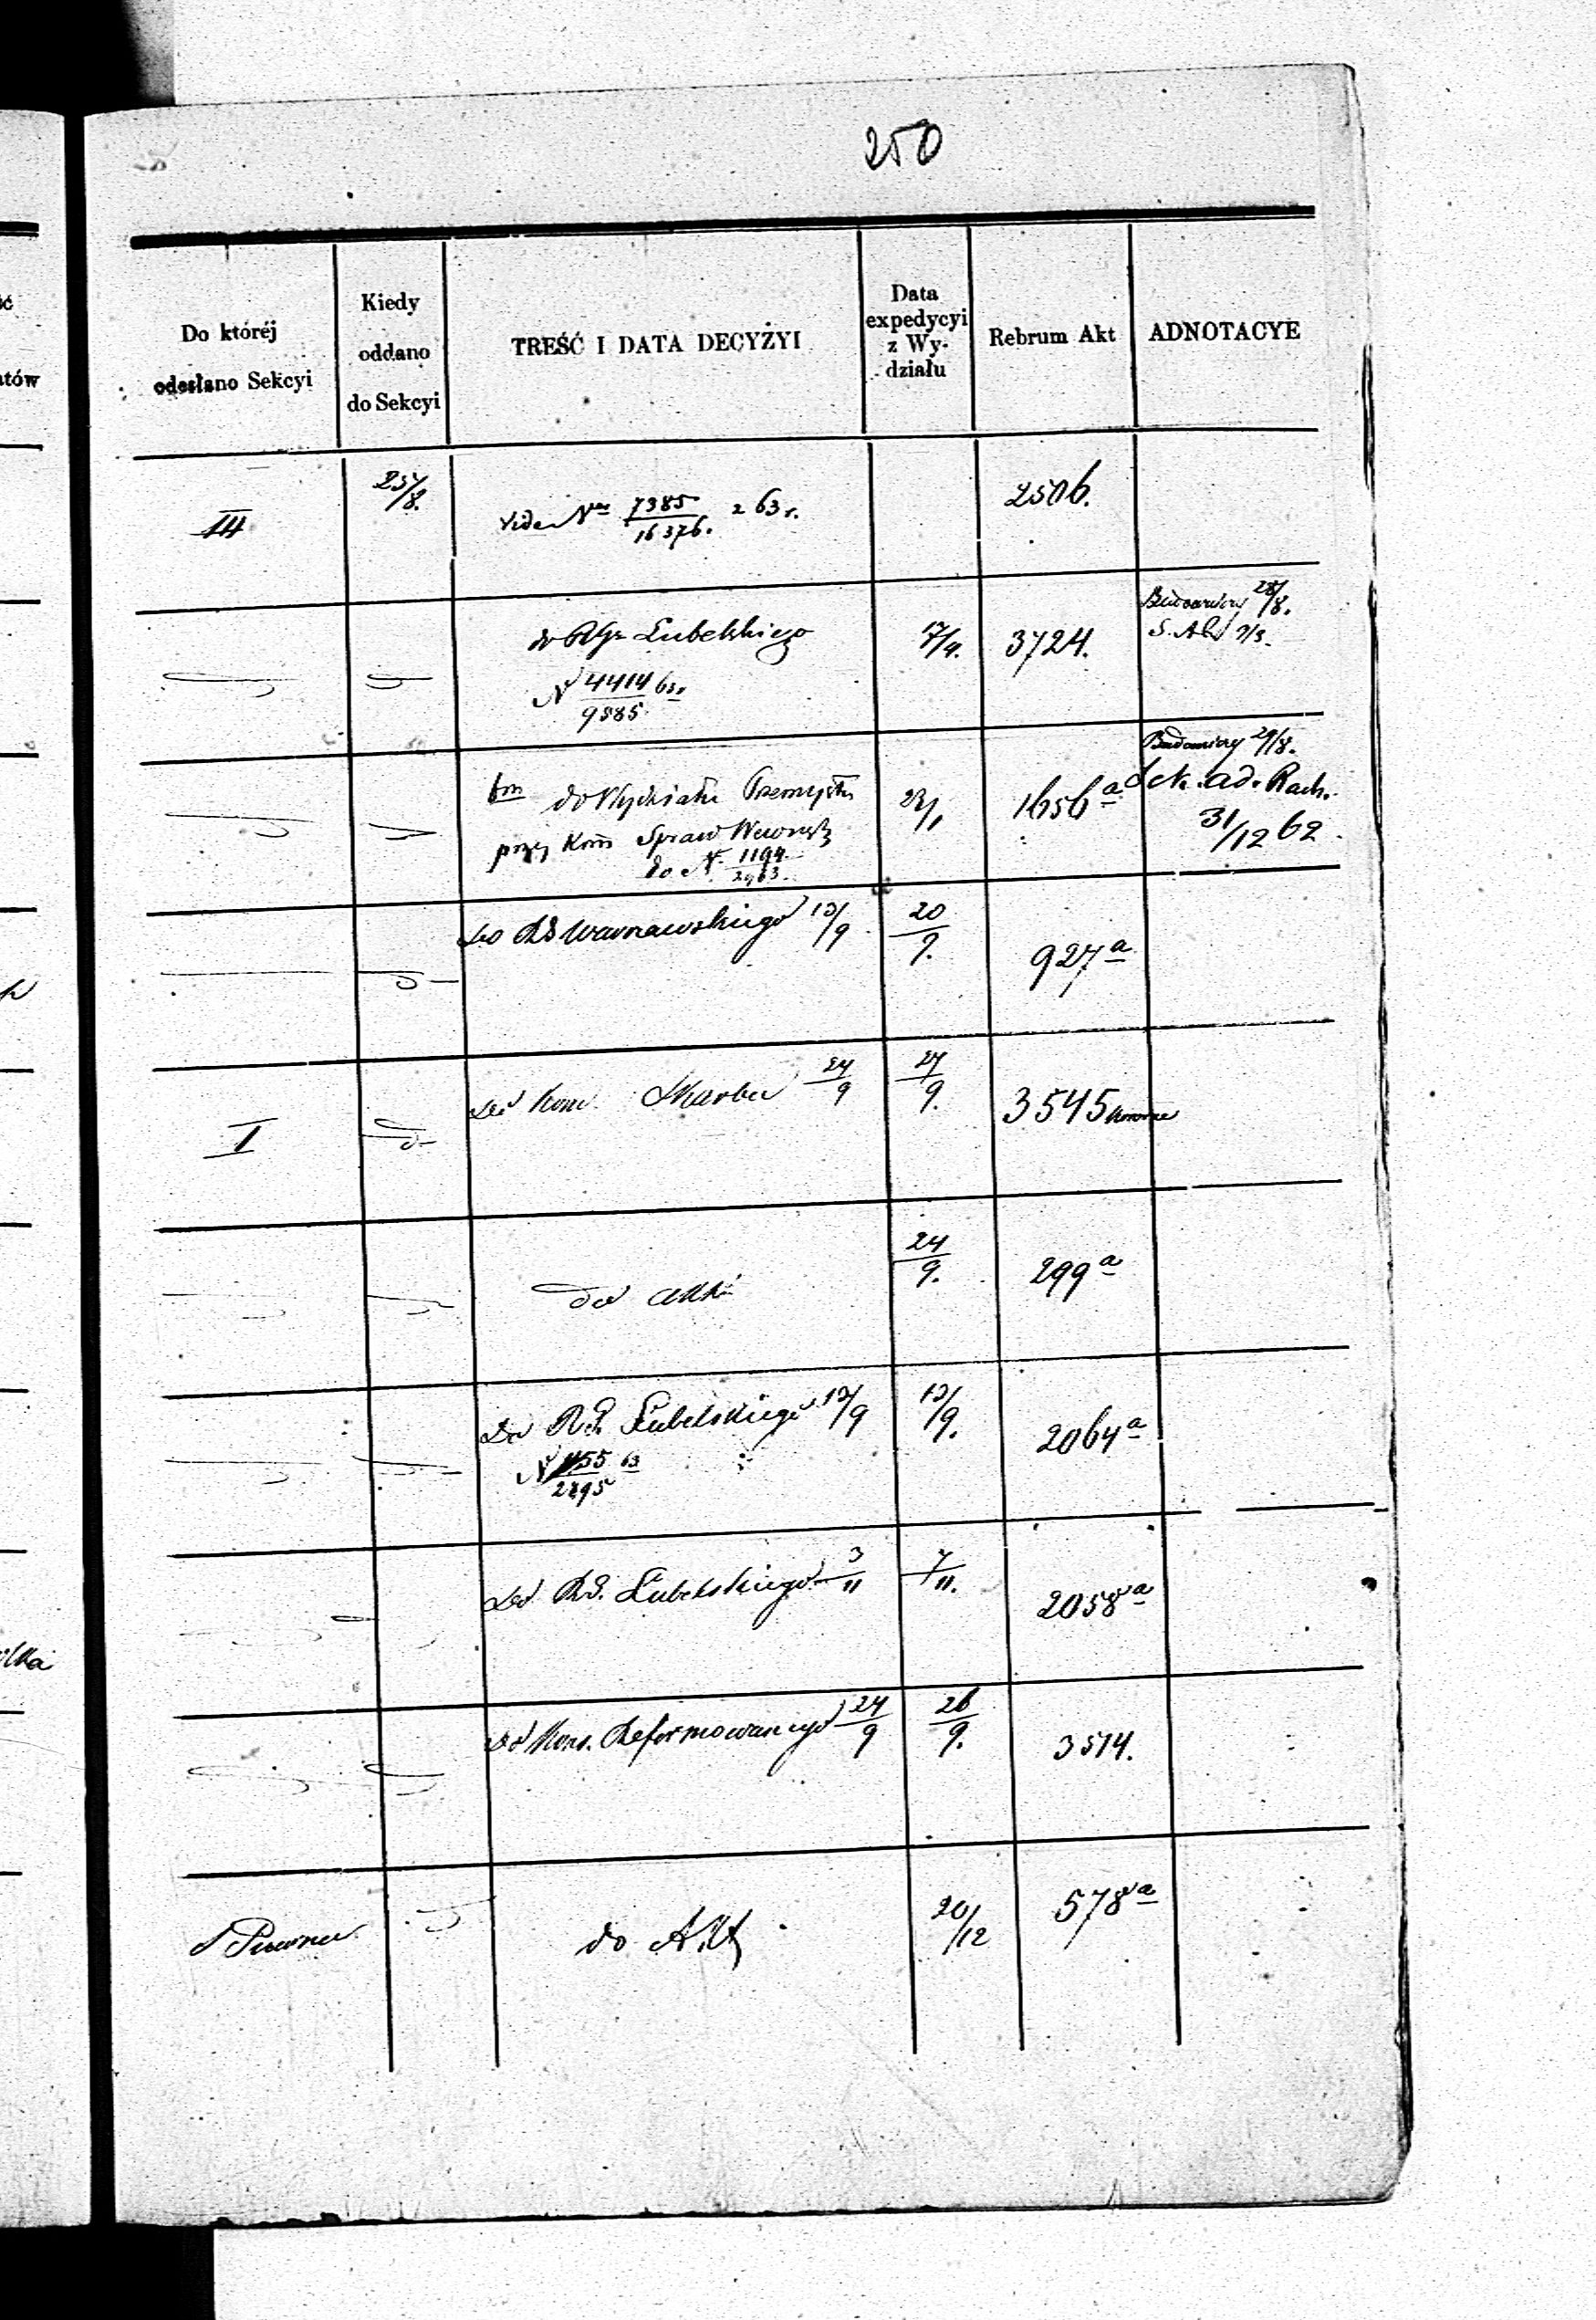 250
Do któréj
odesłano Sekcyi
Kiedy
oddano
do Sekcyi
TREŚĆ I DATA DECYŻYI
Data
expedycyi
z Wy-
działu
Rebrum Akt
ADNOTACYE
III
25/8.
Vide Nr 7385/16376. z 63 r.
2506.
do RGu Lubelskiego
N 4414/9585 63r
17/4.
3724.
Budowniczy 28/8.
9/3.
do Wydziału Przemysłu
przy Kom Spraw Wewnętz
do N. 1194/2963.
23/1
1656a
Budowniczy 29/8.
Sek. ad. Rach.
31/12 62.
Do RG Warszawskiego 13/9
20/9.
927a
I
Do Kom. Skarbu 24/9
27/9.
3545
do akt
24/9.
299a
Do R.G. Lubelskiego 13/9
N 1155/2895 63
13/9.
2064a
Do RG. Lubelskiego 3/11
7/11.
2058a
Do Kons. Reformowanego 24/9
26/9.
3514.
do Akt
20/12
578a